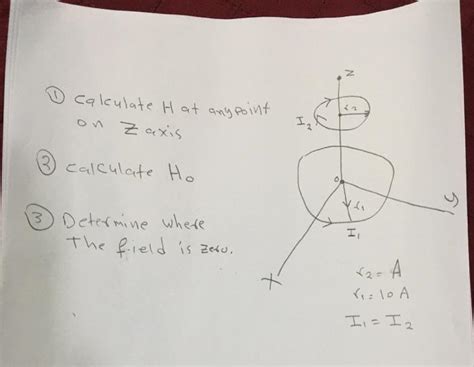 ① Calculate H at any point
on Z axis
② Calculate H₀
③ Determine where
The field is zero.
Z
r₂
I₂
o
y
r₁
I₁
X
r₂ = A
r₁ = 10 A
I₁ = I₂